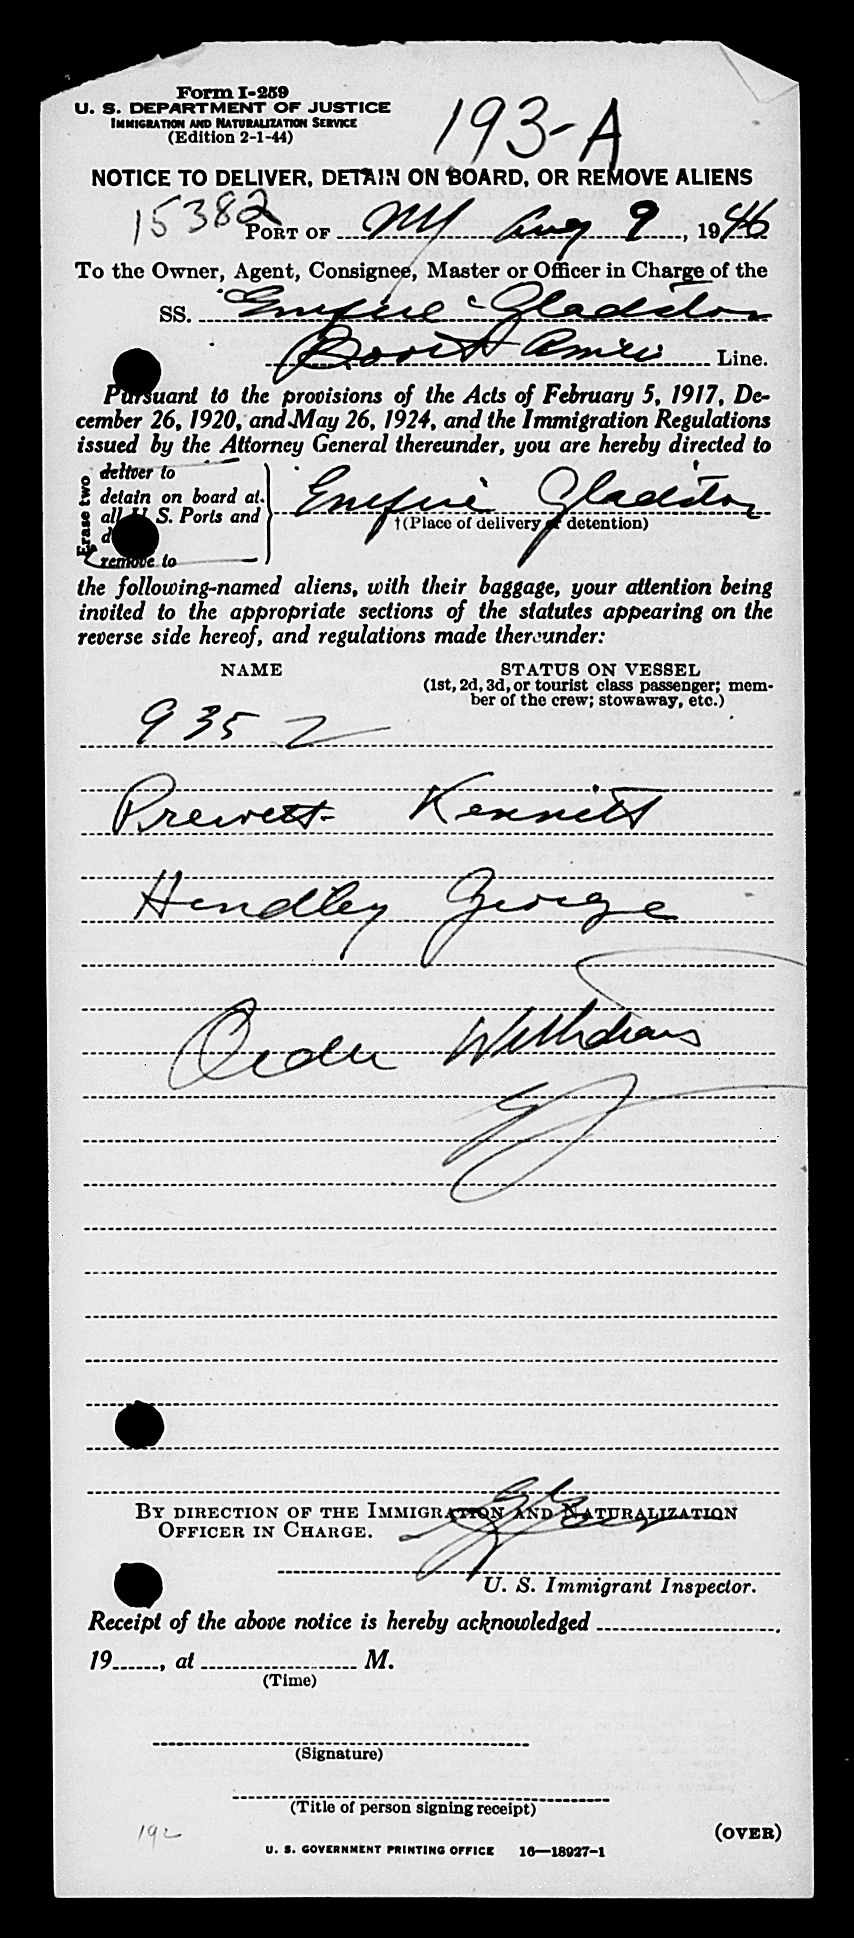 Form I-259
U. S. DEPARTMENT OF JUSTICE
IMMIGRATION AND NATURALIZATION SERVICE
(Edition 2-1-44)
193-A
NOTICE TO DELIVER, DETAIN ON BOARD, OR REMOVE ALIENS
15382
PORT OF NY Aug 9, 1946
To the Owner, Agent, Consignee, Master or Officer in Charge of the
SS. Empire Gladstone
Booth Line.
Pursuant to the provisions of the Acts of February 5, 1917, De-
cember 26, 1920, and May 26, 1924, and the Immigration Regulations
issued by the Attorney General thereunder, you are hereby directed to
Erase two
deliver to
detain on board at
all U. S. Ports and
remove to
Empire Gladston
†(Place of delivery or detention)
the following-named aliens, with their baggage, your attention being
invited to the appropriate sections of the statutes appearing on the
reverse side hereof, and regulations made thereunder:
NAME STATUS ON VESSEL
(1st, 2d, 3d, or tourist class passenger; mem-
ber of the crew; stowaway, etc.)
9352
Prewett Kenneth
Hendley George
Order Withdrawn
BY DIRECTION OF THE IMMIGRATION AND NATURALIZATION
OFFICER IN CHARGE.
U. S. Immigrant Inspector.
Receipt of the above notice is hereby acknowledged
19, at M.
(Time)
(Signature)
(Title of person signing receipt)
192
(OVER)
U. S. GOVERNMENT PRINTING OFFICE 16—18927-1